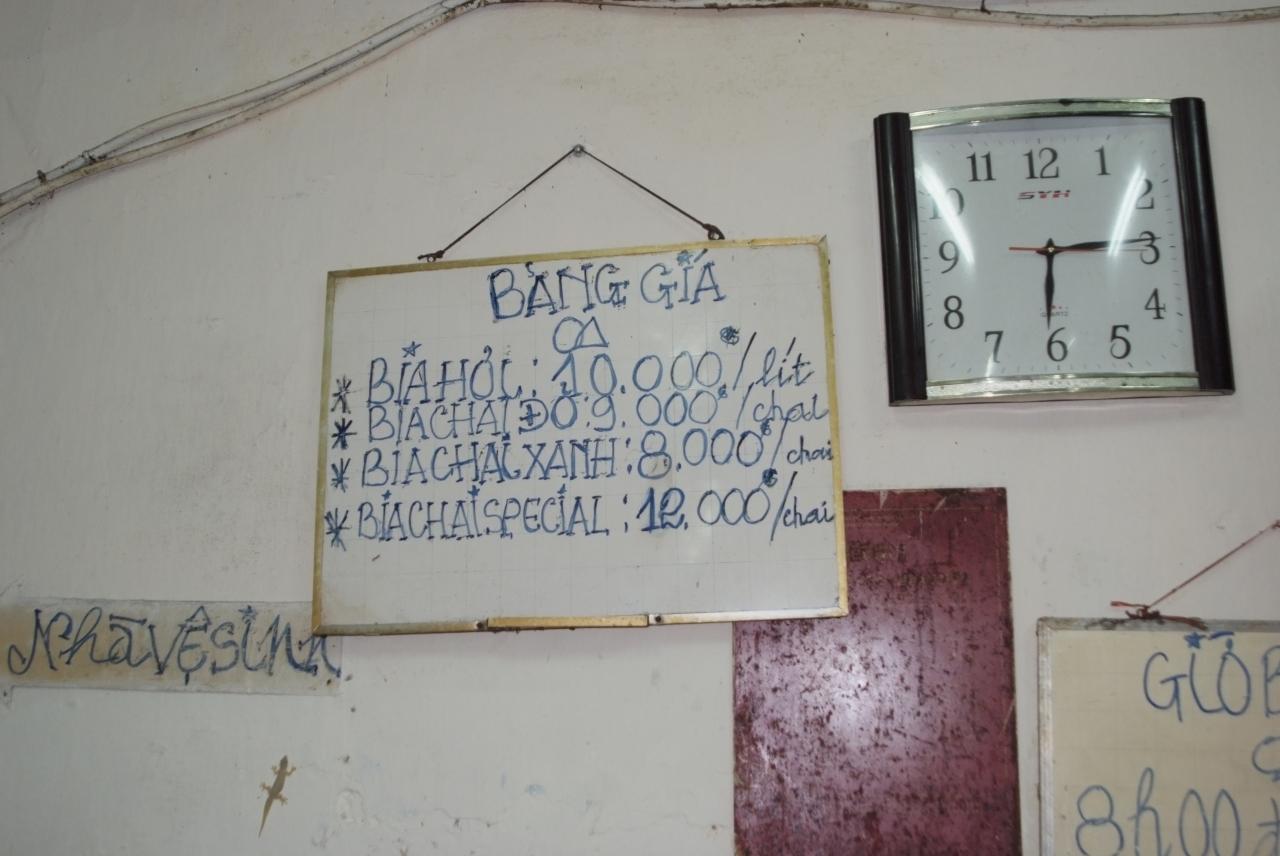 BẢNG GÍA
* BÍA HƠI : 10.000đ/lít
* BIA CHAI ĐỎ : 9.000đ/chai
* BIA CHAI XANH : 8.000đ/chai
* BIA CHAI SPECIAL : 12.000đ/chai
Nhà VỆ SINH
11 12 1
10 2
SYH
9 3
8 4
QUARTZ
7 6 5
GIỜ B
8h00 đ